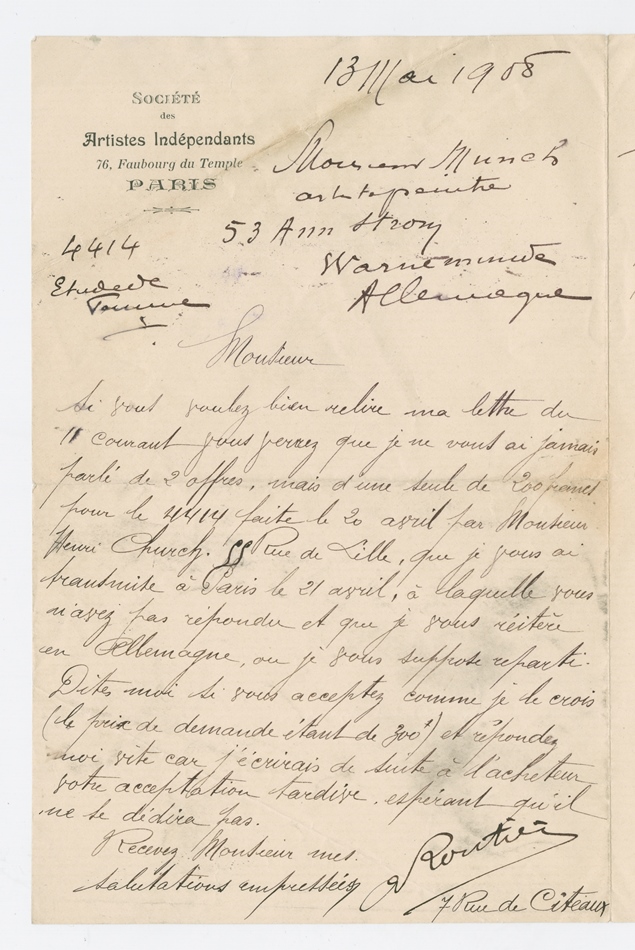 13 Mai 1908
Société
des
Artistes Indépendants
76, Faubourg du Temple
PARIS
Monsieur Munch
artiste peintre
53 Am Strom
Warnemunde
Allemagne
4414
Etude de
Femme
Monsieur
Si vous voulez bien relire ma lettre du
11 courant vous verrez que je ne vous ai jamais
parlé de 2 offres, mais d'une seule de 200 francs
pour le 4414 faite le 20 avril par Monsieur
Henri Church. 55 Rue de Lille, que je vous ai
transmise à Paris le 21 avril, à laquelle vous
n'avez pas répondu et que je vous réitère
en Allemagne, ou je vous suppose reparti.
Dites moi si vous acceptez comme je le crois
(le prix de demande étant de 300f) et répondez
moi vite car j'écrirais de suite à l'acheteur
votre acceptation tardive, espérant qu'il
ne se dédira pas.
Recevez Monsieur mes
salutations empressées
Routier
7 Rue de Citeaux